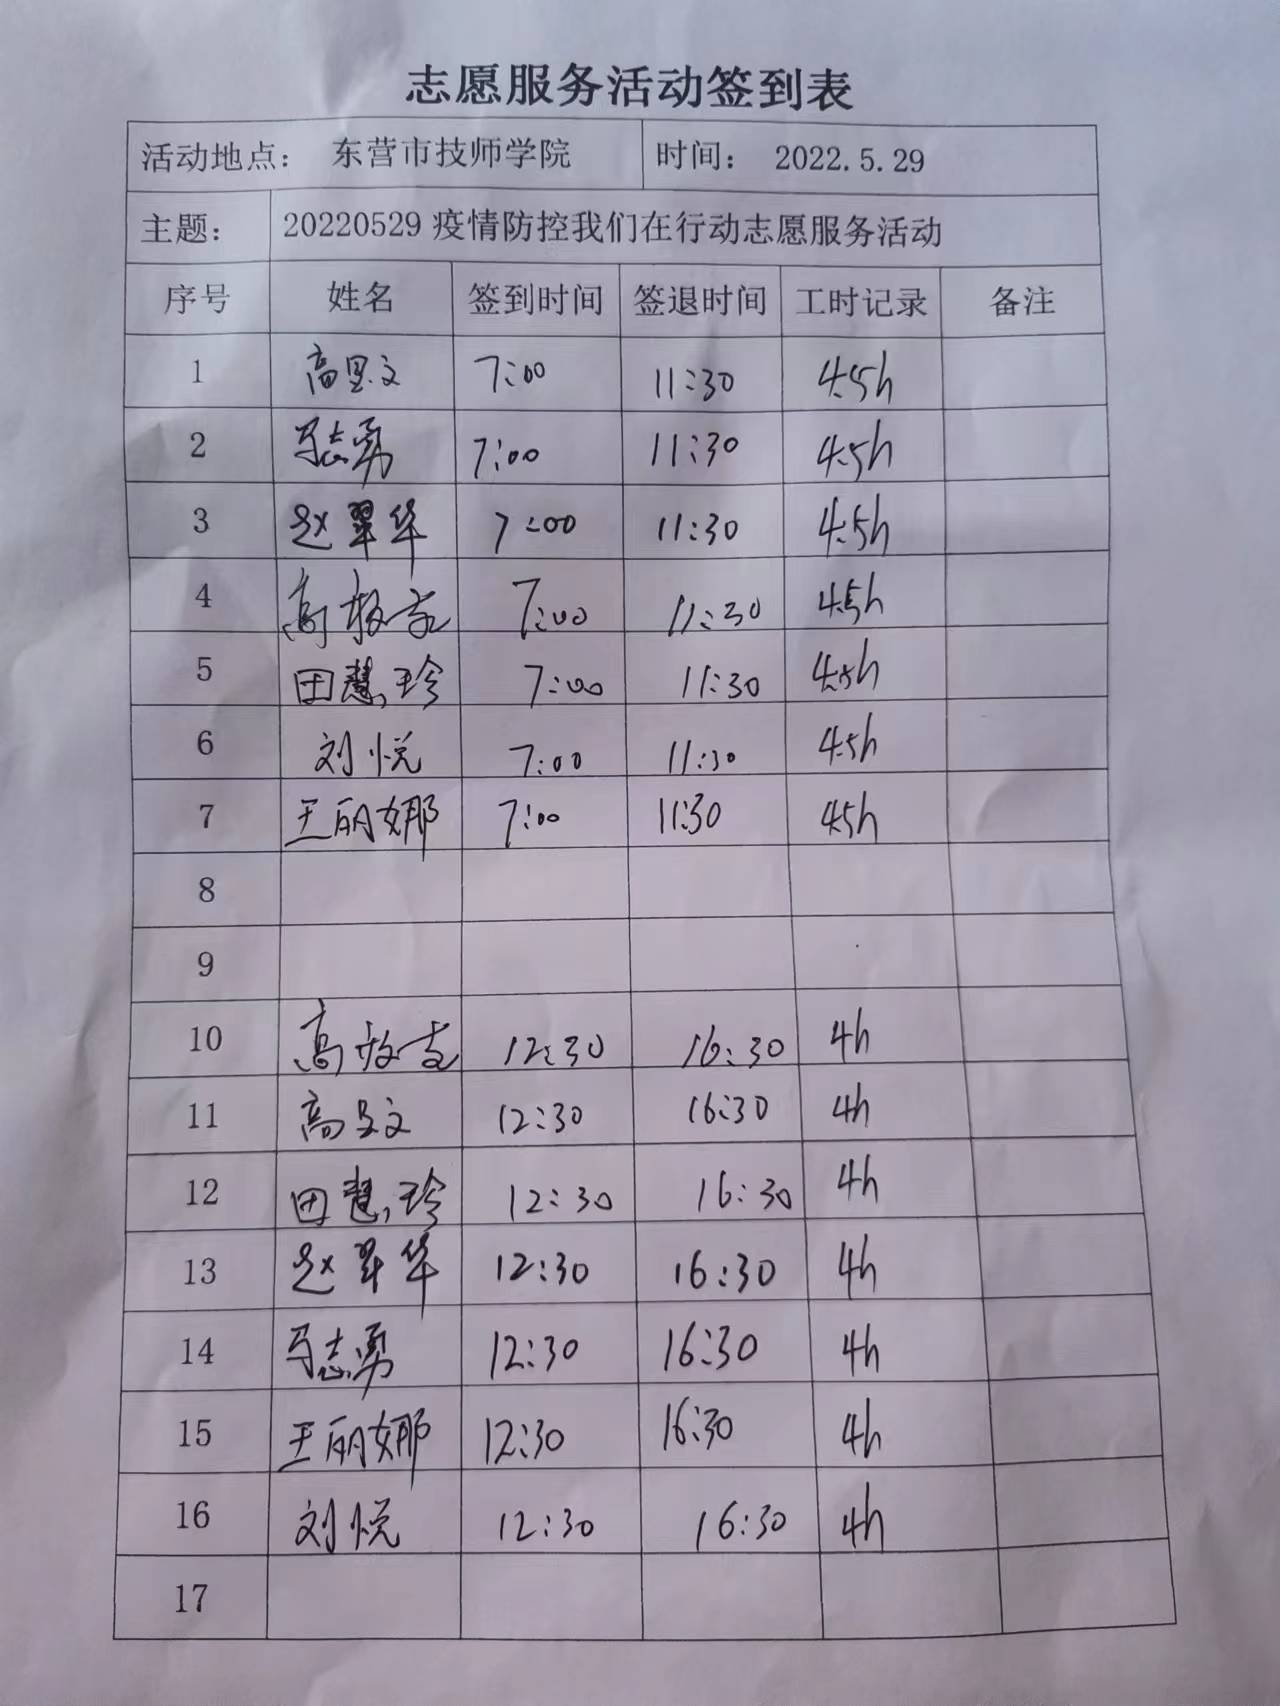 志愿服务活动签到表
活动地点： 东营市技师学院 时间： 2022.5.29
主题： 20220529 疫情防控我们在行动志愿服务活动
序号 姓名 签到时间 签退时间 工时记录 备注
1 7:00 11:30 4.5h
2 马志勇 7:00 11:30 4.5h
3 赵翠华 7:00 11:30 4.5h
4 7:00 11:30 4.5h
5 田慧玲 7:00 11:30 4.5h
6 刘悦 7:00 11:30 4.5h
7 王丽娜 7:00 11:30 4.5h
8
9
10 12:30 16:30 4h
11 12:30 16:30 4h
12 田慧玲 12:30 16:30 4h
13 赵翠华 12:30 16:30 4h
14 马志勇 12:30 16:30 4h
15 王丽娜 12:30 16:30 4h
16 刘悦 12:30 16:30 4h
17